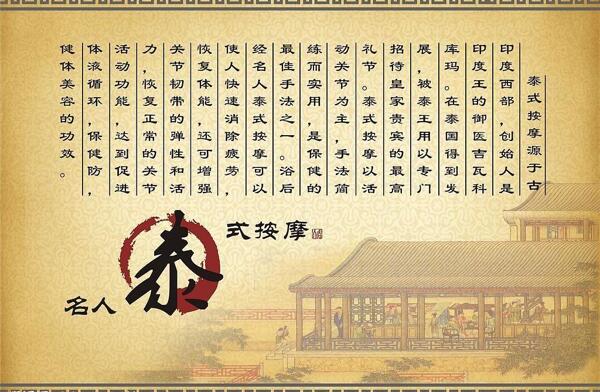 泰式按摩源于古
印度西部，创始人是
印度王的御医吉瓦科
库玛。在泰国得到发
展，被泰王用以专门
招待皇家贵宾的最高
礼节。泰式按摩以活
动关节为主，手法简
练而实用，是保健的
最佳手法之一。浴后
经名人泰式按摩可以
使人快速消除疲劳，
恢复体能，还可增强
关节韧带的弹性和活
力，恢复正常的关节
活动功能，达到促进
体液循环，保健防，
健体美容的功效。
名人泰式按摩